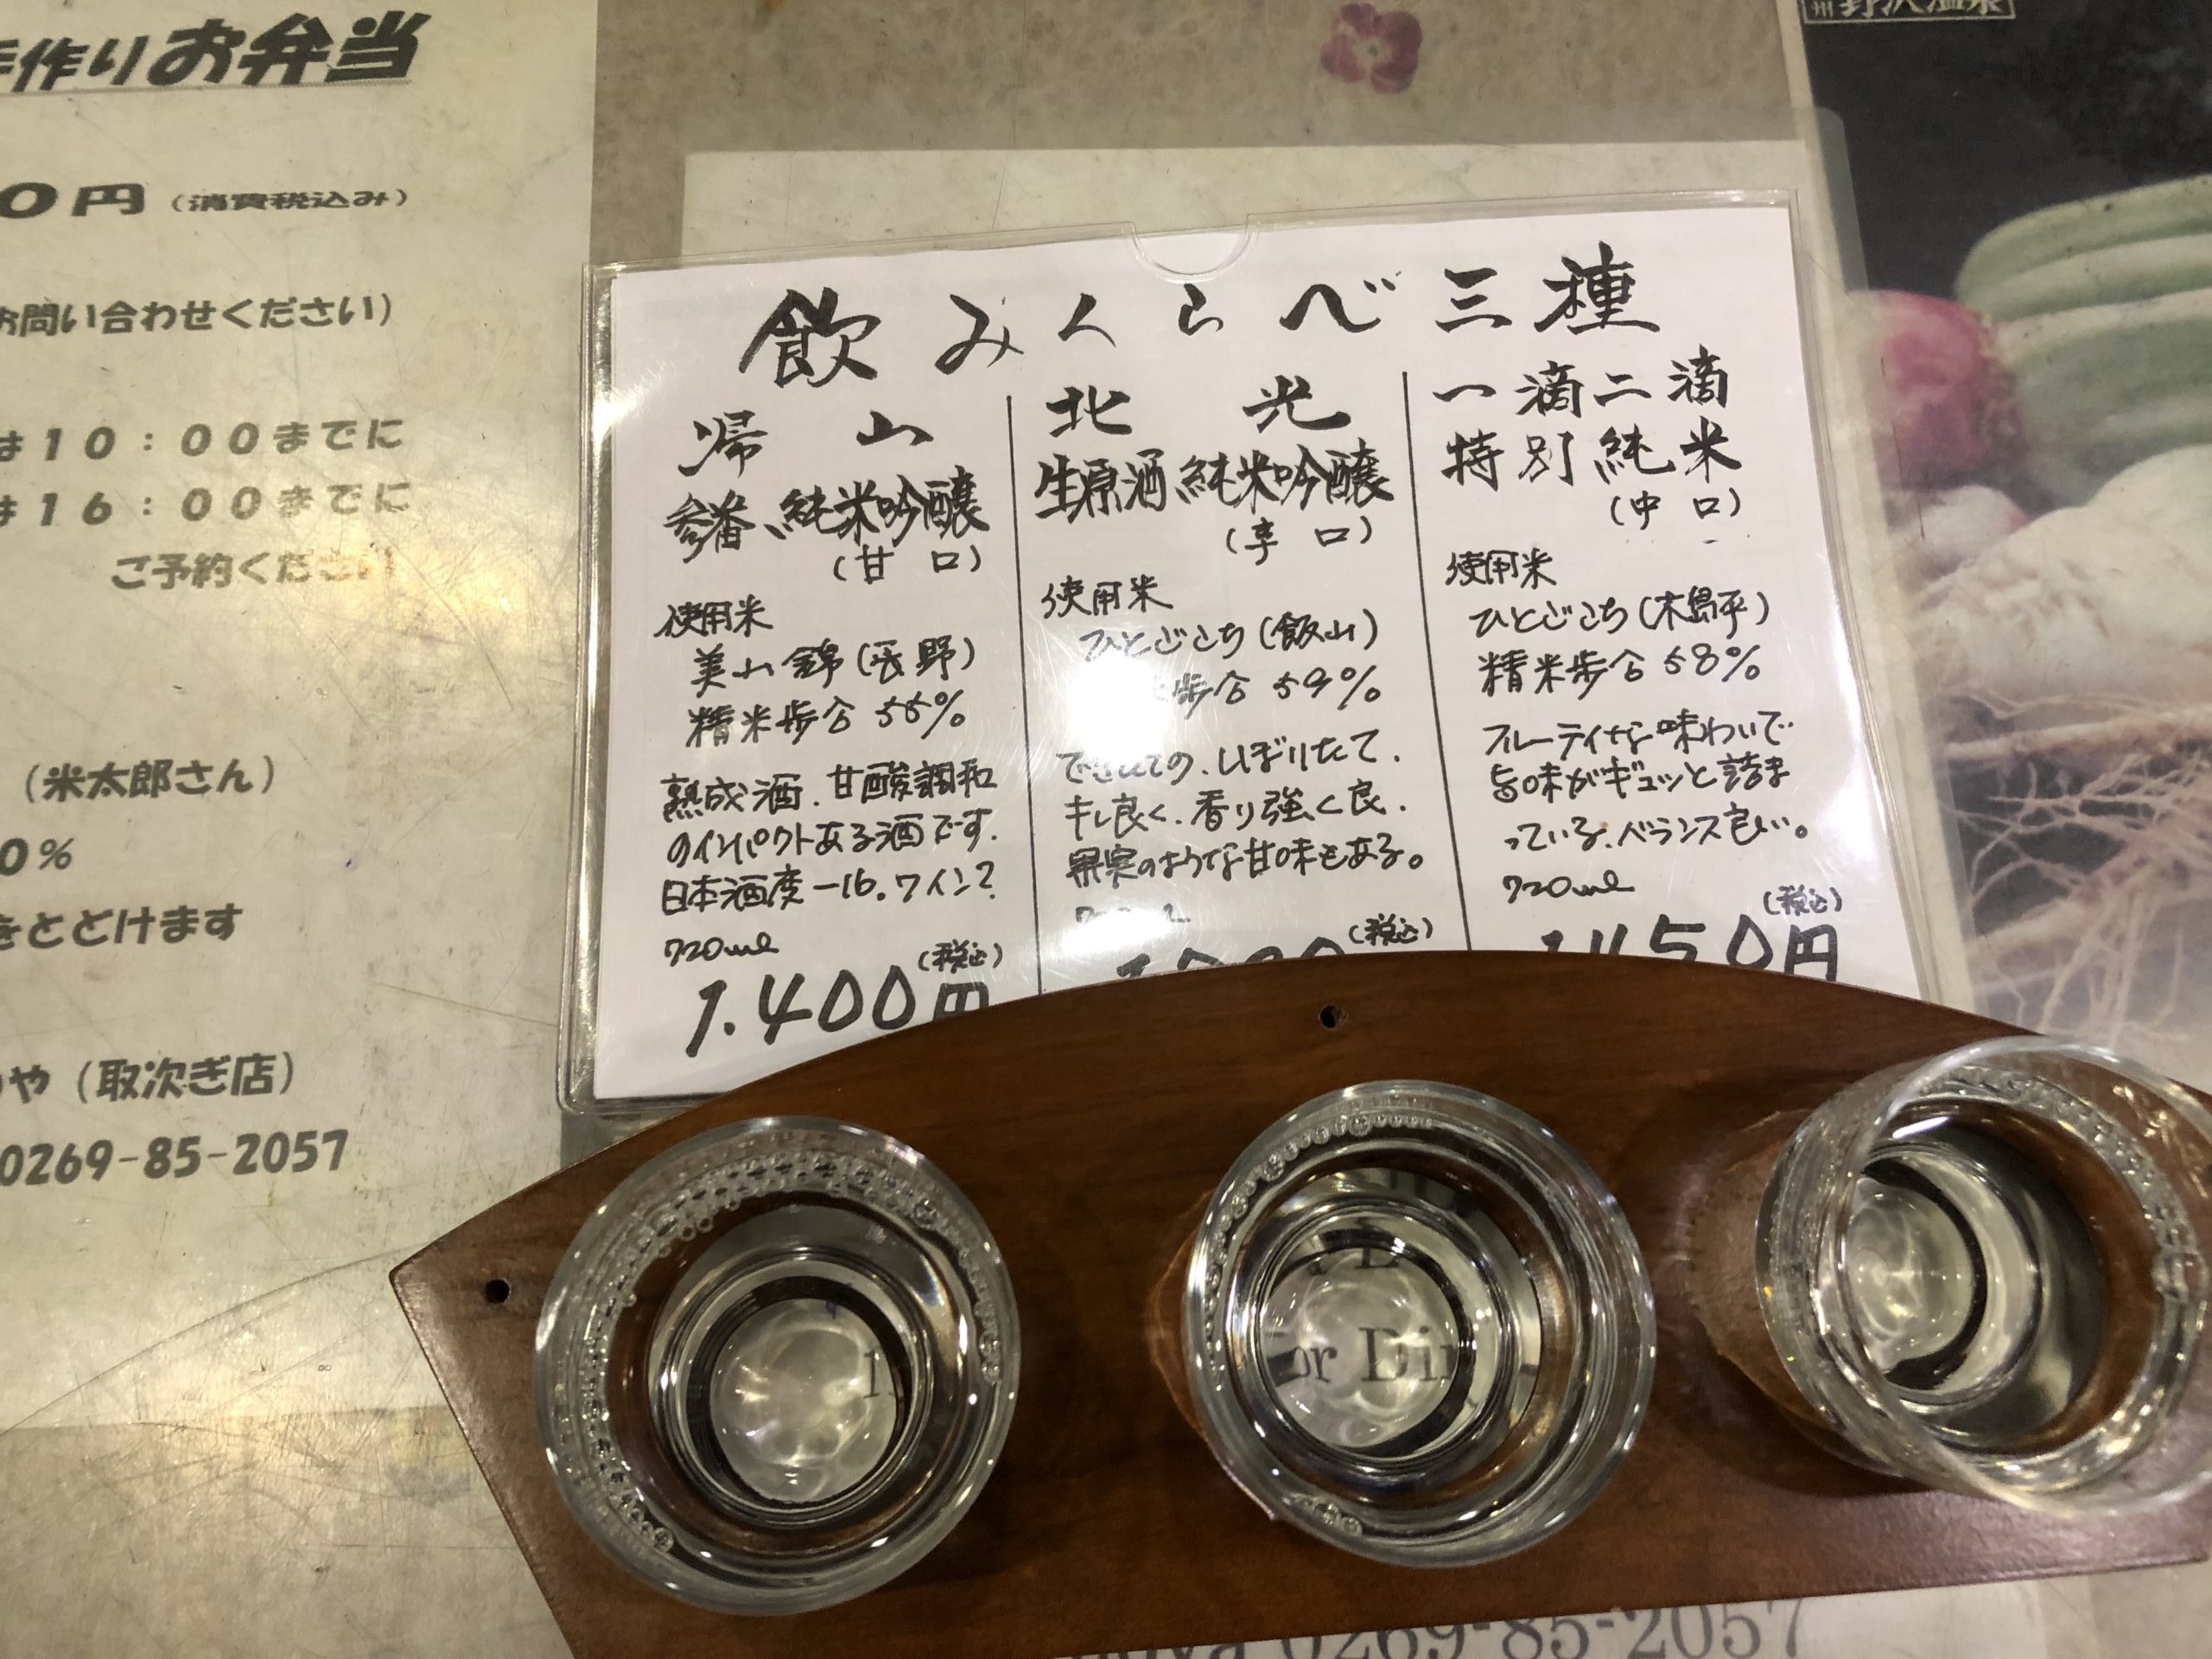 手作りお弁当
0円（消費税込み）
お問い合わせください）
は10：00までに
は16：00までに
ご予約ください
（米太郎さん）
0%
をとどけます
や（取次ぎ店）
0269-85-2057
飲みくらべ三種
帰山
参番、純米吟醸
（甘口）
使用米
美山錦（長野）
精米歩合55%
熟成酒．甘酸調和
のインパクトある酒です．
日本酒度−16。ワイン？
720ml
（税込）
1.400円
北光
生原酒 純米吟醸
（辛口）
使用米
ひとごこち（飯山）
歩合59%
できたての．しぼりたて．
キレ良く．香り強く良．
果実のような甘味もある。
（税込）
一滴二滴
特別純米
（中口）
使用米
ひとごこち（木島平）
精米歩合58%
フルーティな味わいで
旨味がギュッと詰ま
っている．バランス良い。
720ml
（税込）
1,450円
野沢温泉
or Din
0269-85-2057